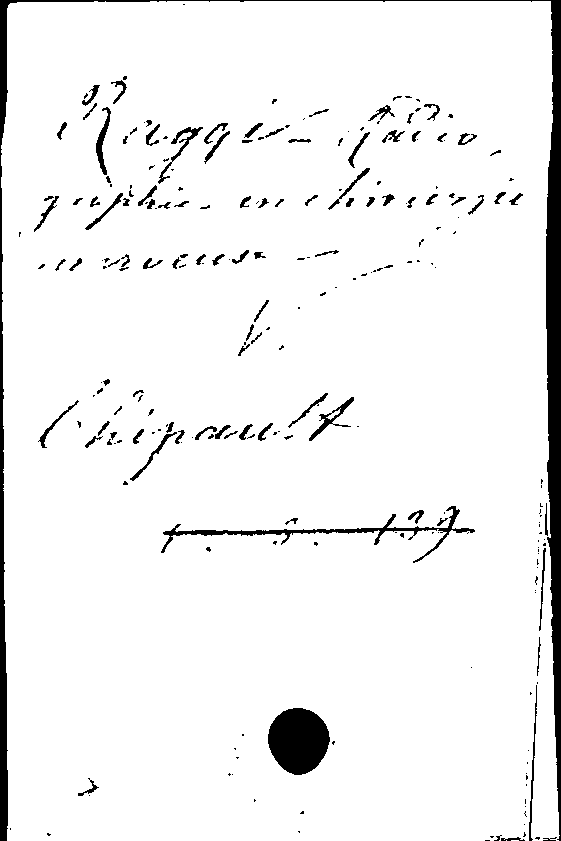 Raggi - Radio-
graphie en chirurgie
nerveuse -
V.
Chipault
1. 3. 139